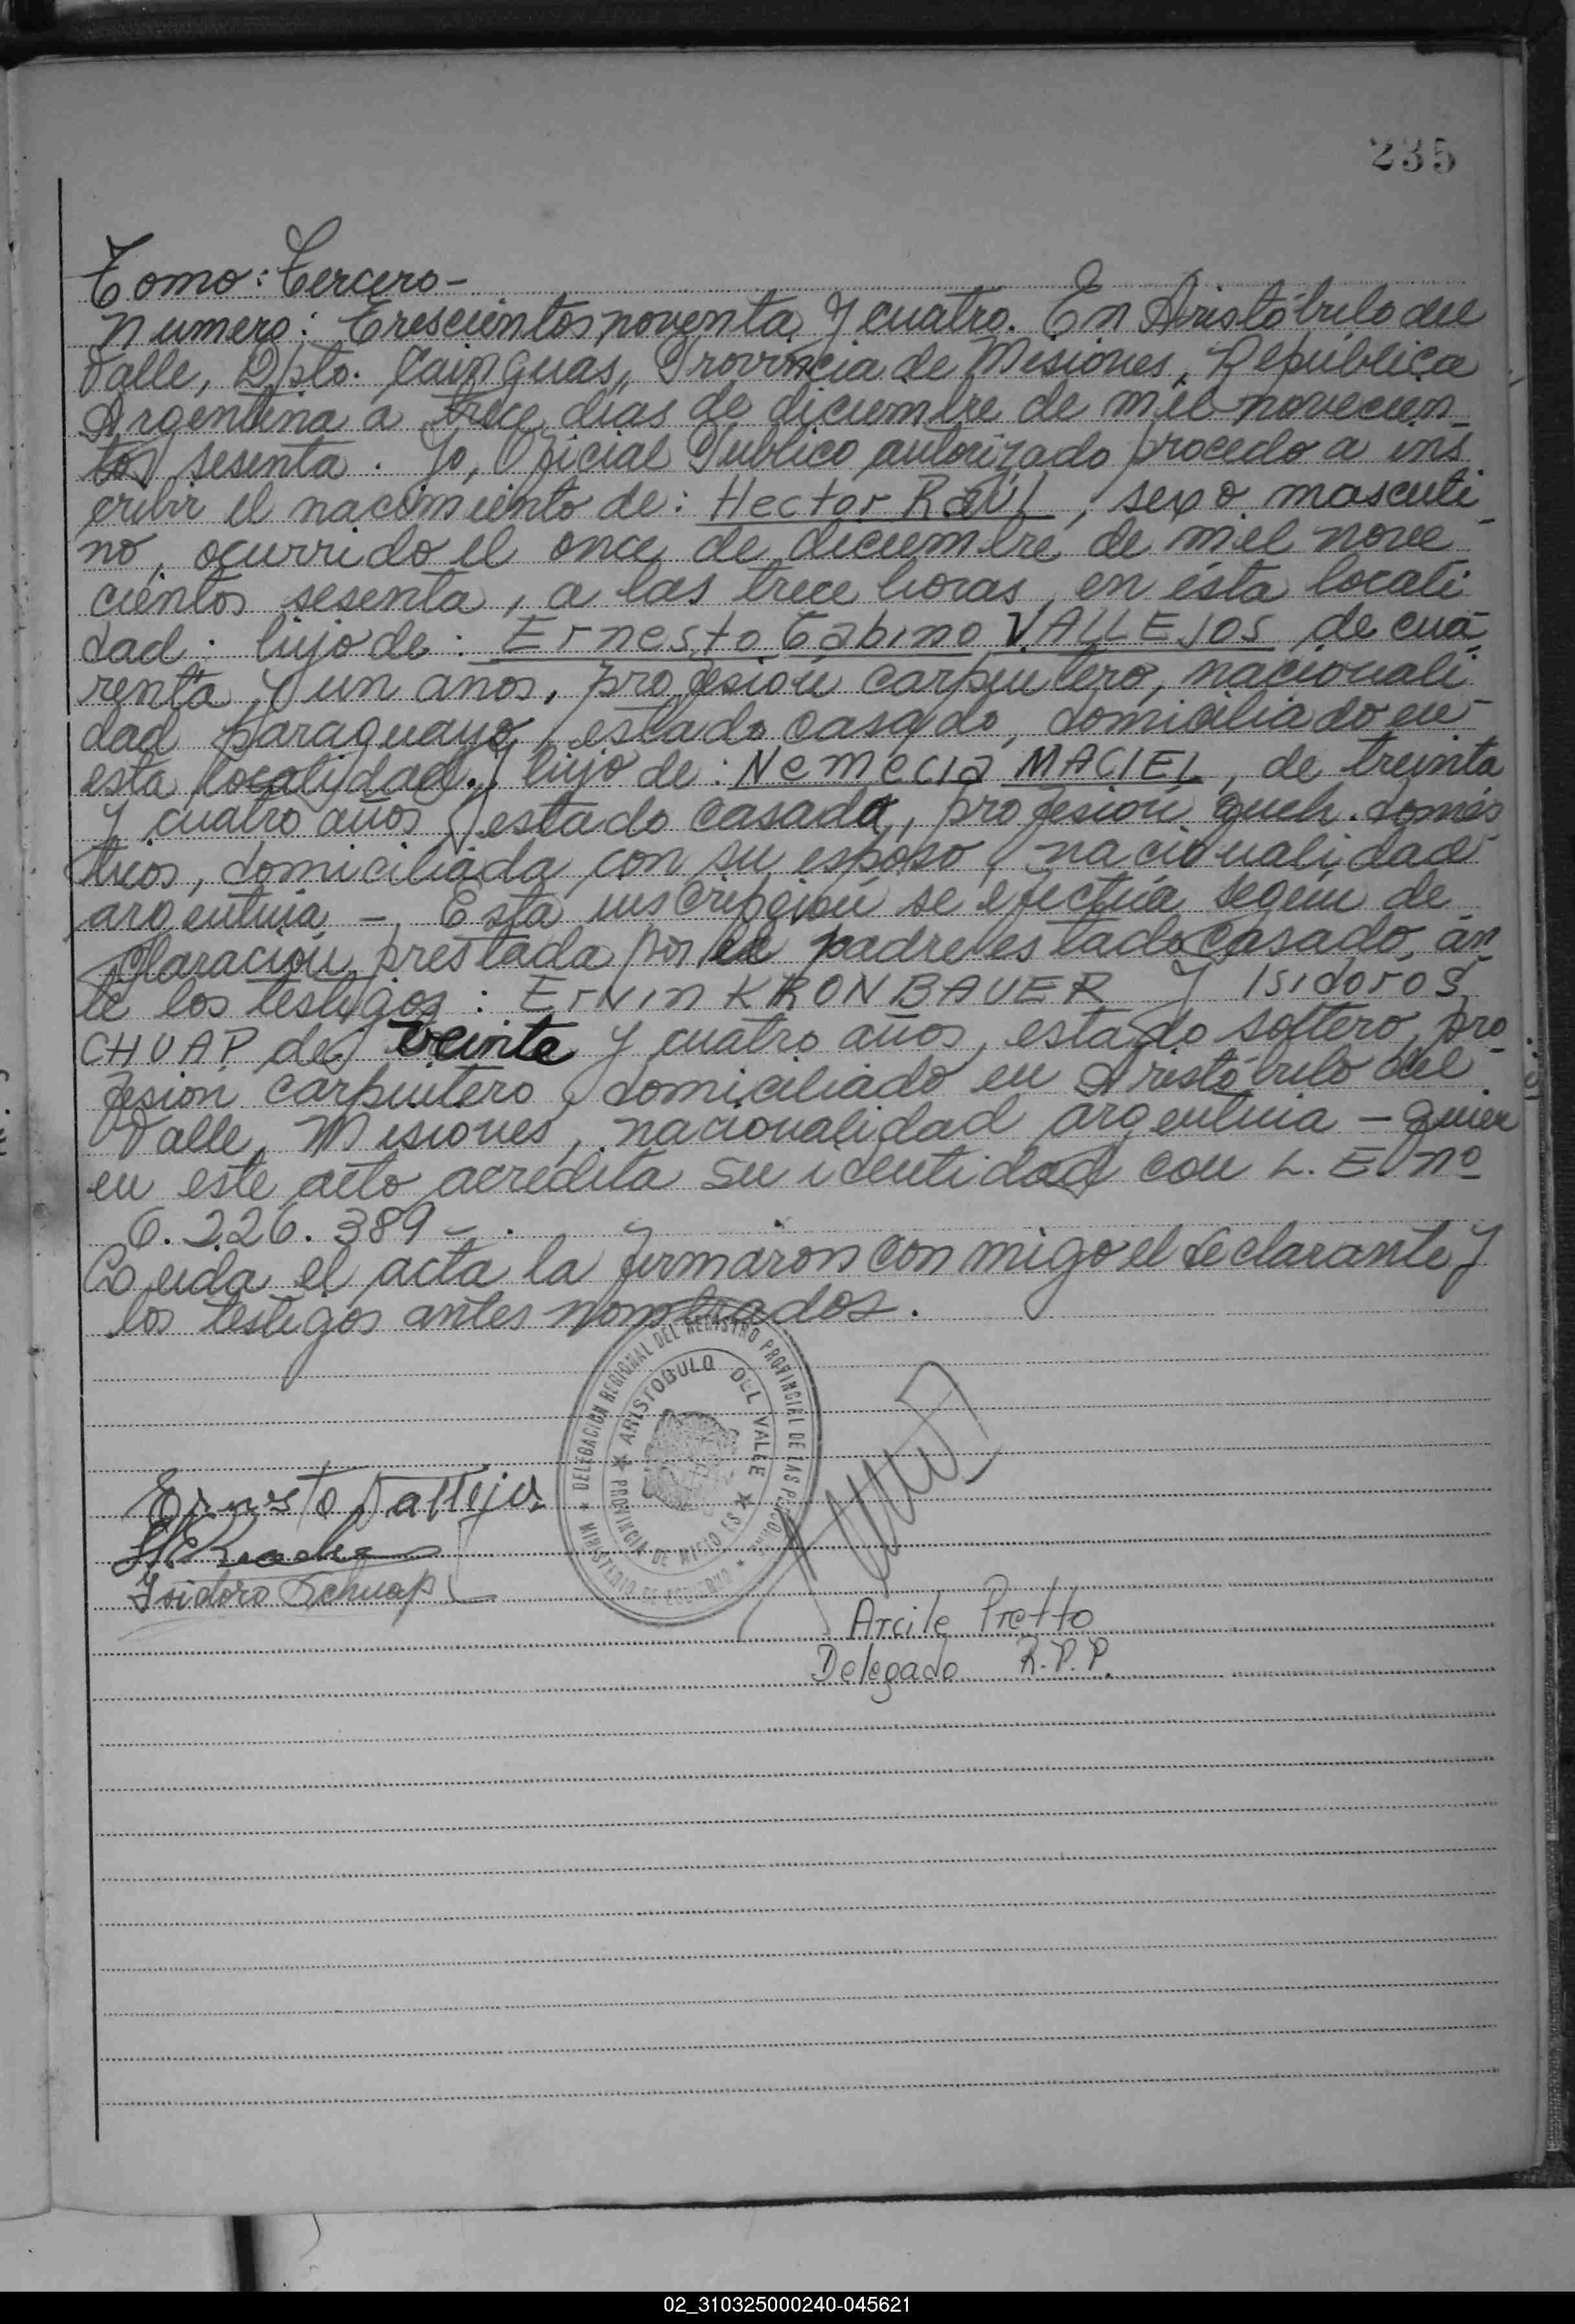 235
Tomo: Tercero-
Numero: Trescientos noventa y cuatro. En Aristóbulo del
Valle, Dpto. Cainguas, Provincia de Misiones, República
Argentina a trece dias de diciembre de mil novecien_
tos sesenta. Yo, Oficial Publico autorizado procedo a ins_
cribir el nacimiento de: Hector Raúl, sexo masculi_
no, ocurrido el once de diciembre de mil nove_
cientos sesenta, a las trece horas, en ésta locali_
dad: hijo de: Ernesto Gabino VALLEJOS de cua_
renta y un años, profesión carpintero, nacionali_
dad paraguayo, estado casado, domiciliado en
esta localidad.y hijo de: Nemecia MACIEL, de treinta
y cuatro años, estado casada, profesión queh. domés_
ticos, domiciliada con su esposo, nacionalidad
argentina - Esta inscripción se efectúa según de_
claración prestada por el padre estado casado, an_
te los testigos: Ervin KRONBAUER y ISIDORO S
CHUAP de veinte y cuatro años, estado soltero, pro_
fesion carpintero, domiciliado en Aristóbulo del
Valle, Misiones, nacionalidad argentina - quien
en este acto acredita su identidad con L. E. nº
6.226.389 -.
Leida el acta la firmaron conmigo el declarante y
los testigos antes nombrados.
DELEGACION REGIONAL DEL REGISTRO PROVINCIAL DE LAS PERSONAS
ARISTOBULO DEL VALLE
PROVINCIA DE MISIONES
MINISTERIO DE GOBIERNO
Ernesto Vallejos
Isidoro Schuap
Arcile Pretto
Delegado R.P.P.
02_310325000240-045621